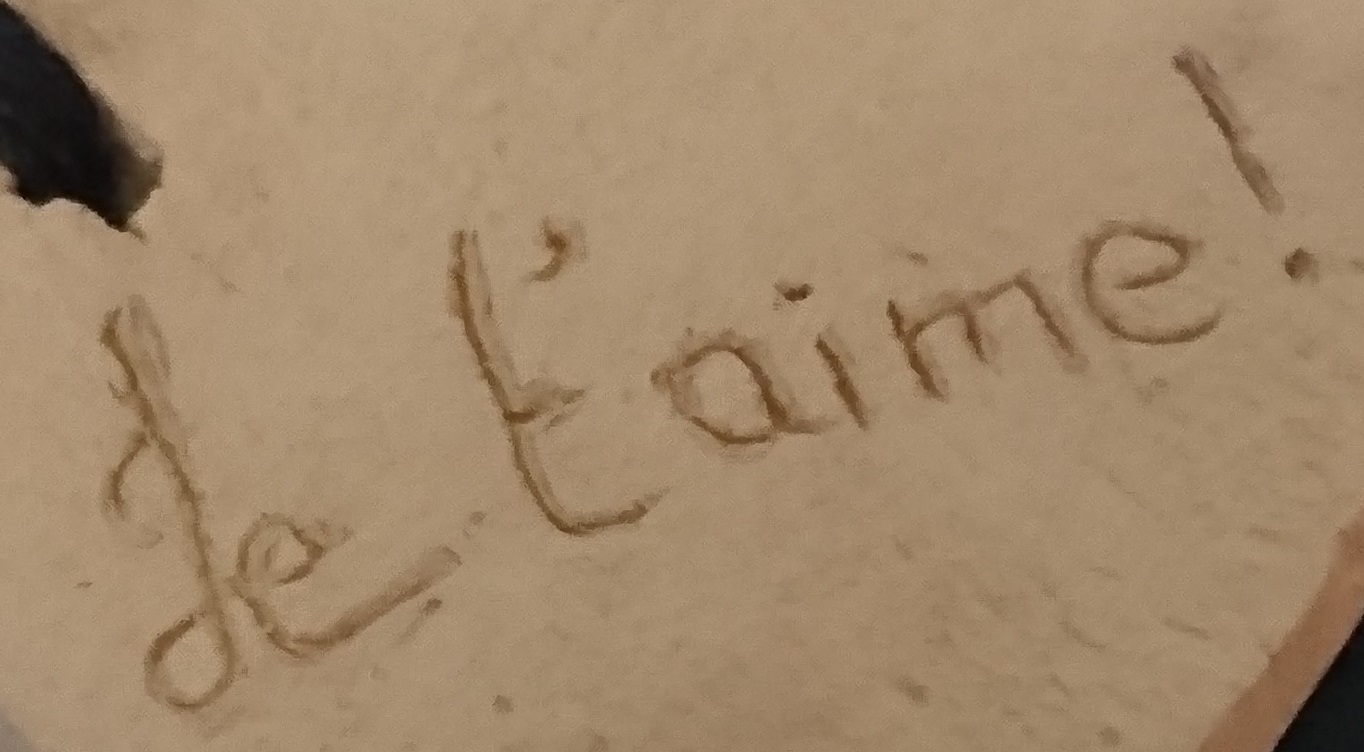 Je t'aime!